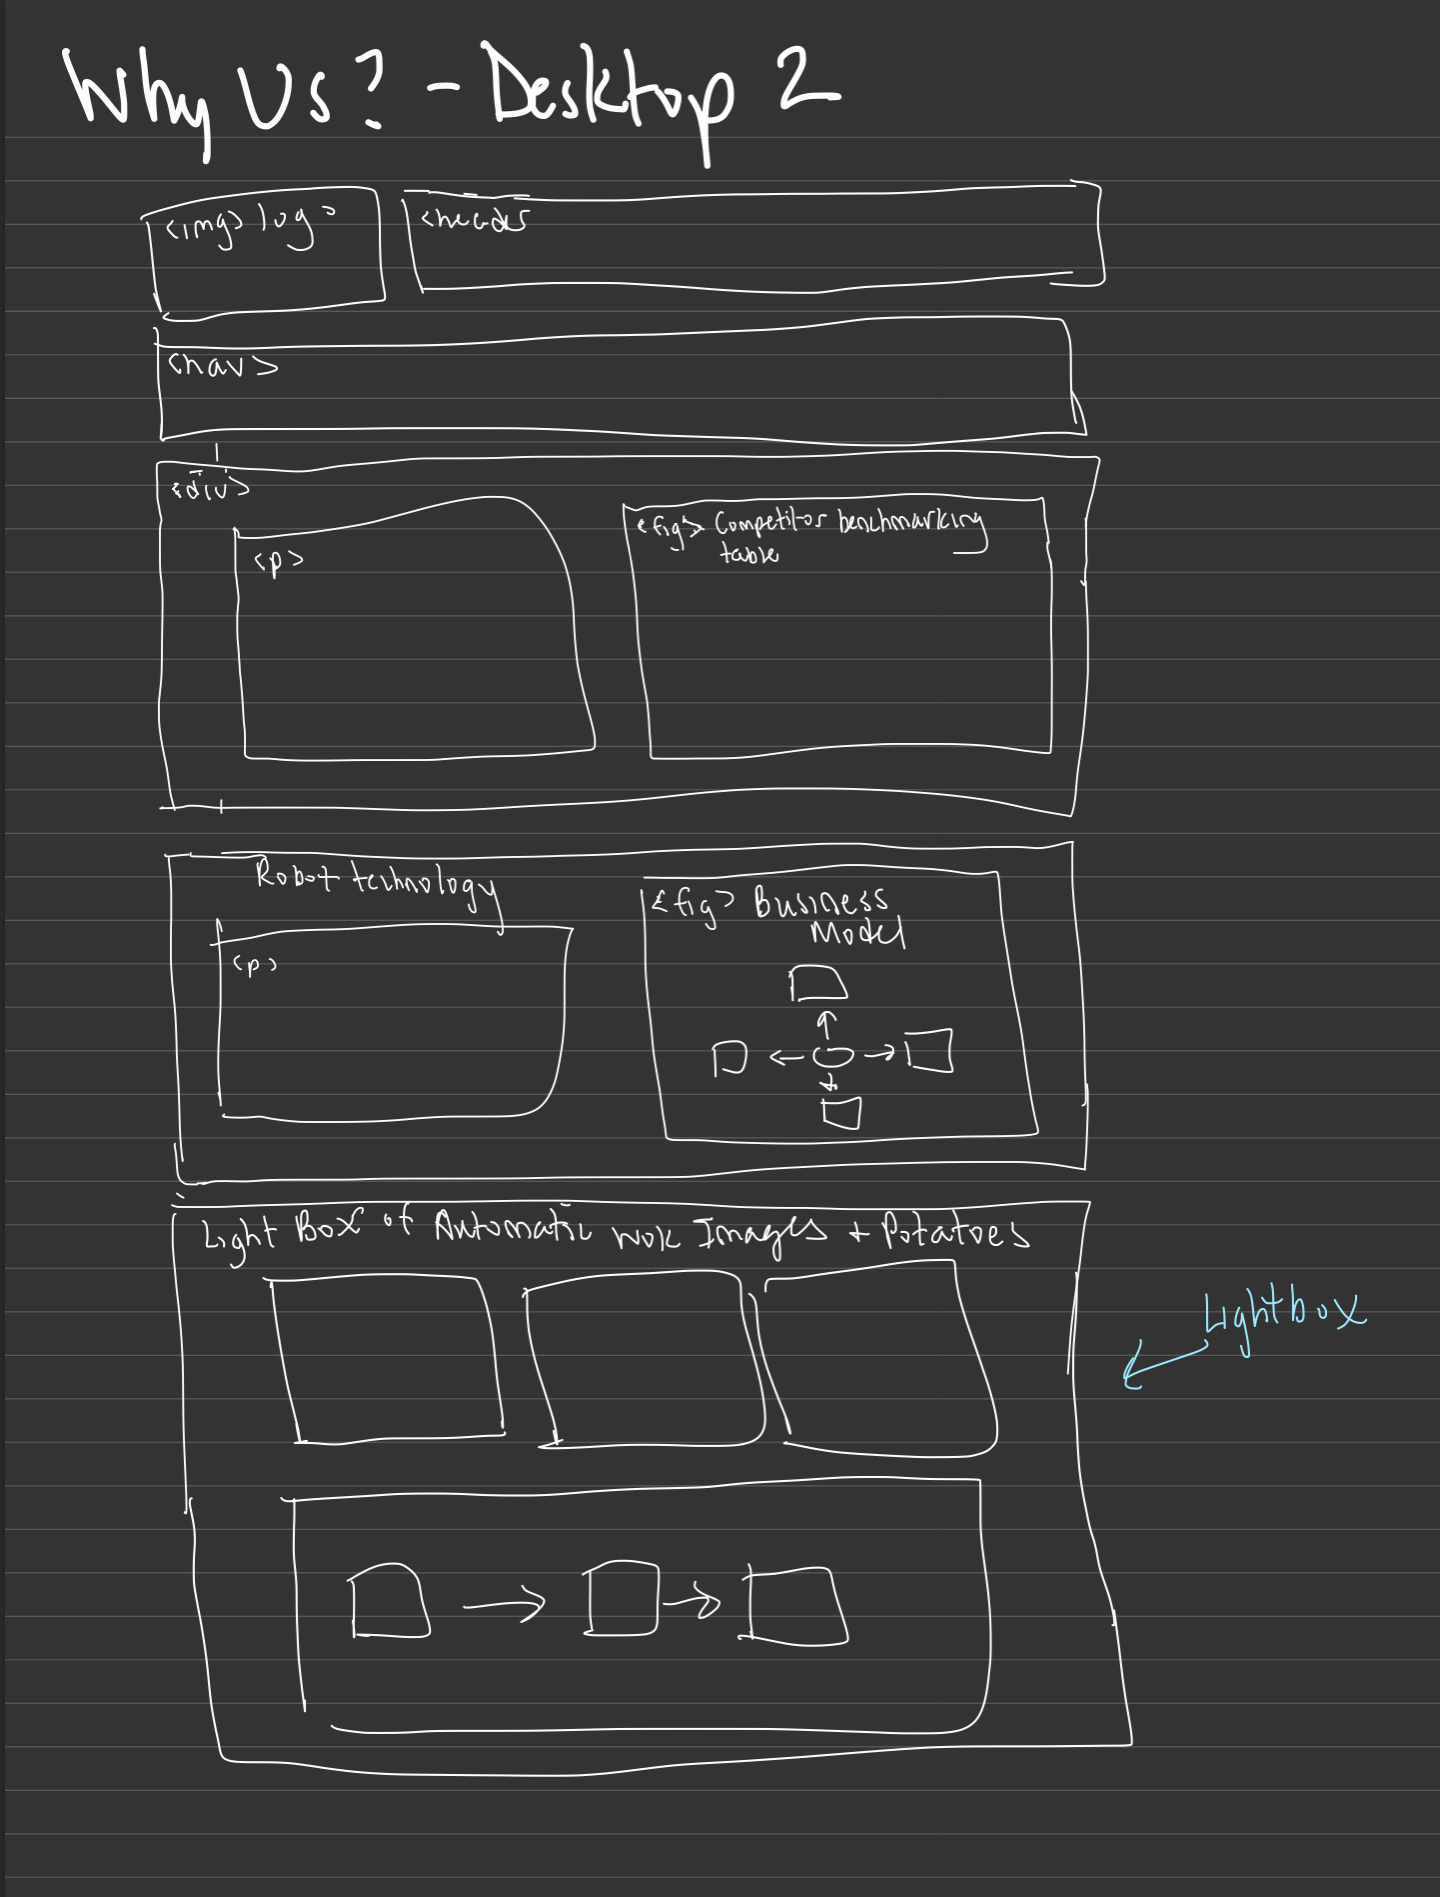 Why Us? - Desktop 2
<img> logo
<header
<nav>
<div>
<p>
<fig> Competitor benchmarking
table
Robot technology
<p>
<fig> Business
Model
Light Box of Automatic wok Images + Potatoes
Lightbox